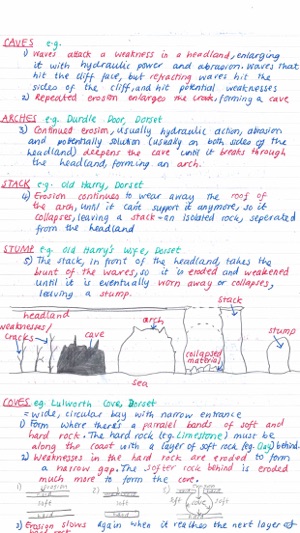 CAVES e.g.
1) Waves attack a weakness in a headland, enlarging
it with hydraulic power and abrasion. Waves that
hit the cliff face, but refracting waves hit the
sides of the cliff, and hit potential weaknesses
2) Repeated erosion enlarges the crack, forming a cave
ARCHES e.g. Durdle Door, Dorset
3) Continued erosion, usually hydraulic action, abrasion
and potentially solution (usually on both sides of the
headland) deepens the cave until it breaks through
the headland, forming an arch.
STACK e.g. Old Harry, Dorset
4) Erosion continues to wear away the roof of
the arch, until it can't support it anymore, so it
collapses, leaving a stack - an isolated rock, seperated
from the headland
STUMP e.g. Old Harry's Wife, Dorset
5) The stack, in front of the headland, takes the
brunt of the waves, so it is eroded and weakened
until it is eventually worn away or collapses,
leaving a stump.
stack
headland
weaknesses/
cracks
cave
arch
stump
collapsed
material
sea
COVES eg. Lulworth Cove, Dorset
= wide, circular bay with narrow entrance
1) Form where there's a parallel bands of soft and
hard rock. The hard rock (eg. Limestone) must be
along the coast with a layer of soft rock (eg. Clay) behind.
2) Weaknesses in the hard rock are eroded to form
a narrow gap. The softer rock behind is eroded
much more to form the cove.
1) erosion
hard
soft
2)
3)
soft cove soft
3) Erosion slows again when it reaches the next layer of
hard rock